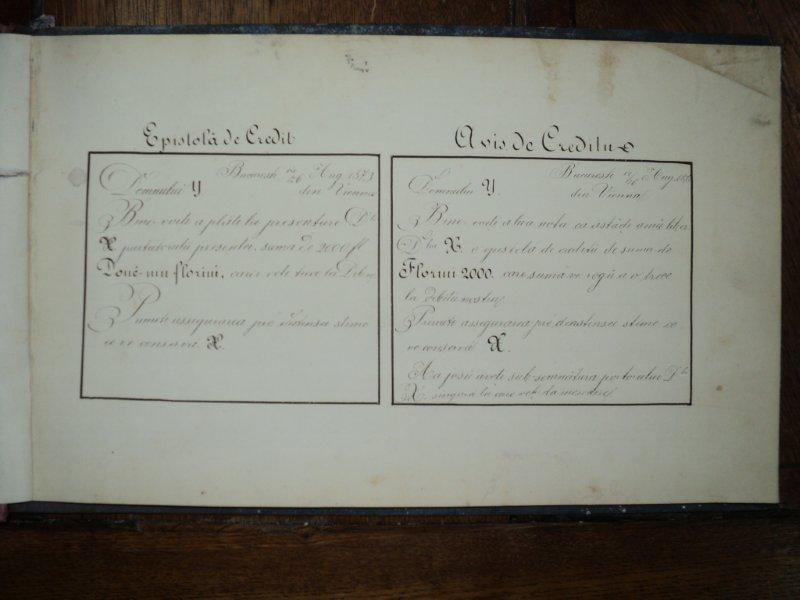 Epistolă de Credit
Bucuresti 14/26 Aug. 1873
Domnului Y din Vienna
Bine-voiti a plăti la presentare D-lui
X portatorulu presentei, suma de 2000 fl.
Doué-mii florini, care veti trece la Debitu
Primiti assigurarea pré distinsei stime
ce ve conservă X.
Avis de Creditu
Bucuresti 14/26 Aug. 1873
Domnului Y. din Vienna
Bine-voiti a lua nota, ca astădi amu
D-lui X. o epistolă de creditu de suma de
Florini 2000. care sumă ve rogu a o trece
la debitu nostru
Primiti assigurarea pré distinsei stime ce
ve conservă X.
Mai josu aveti sub-semnătura portorului D-lui
X, singura la care veti da